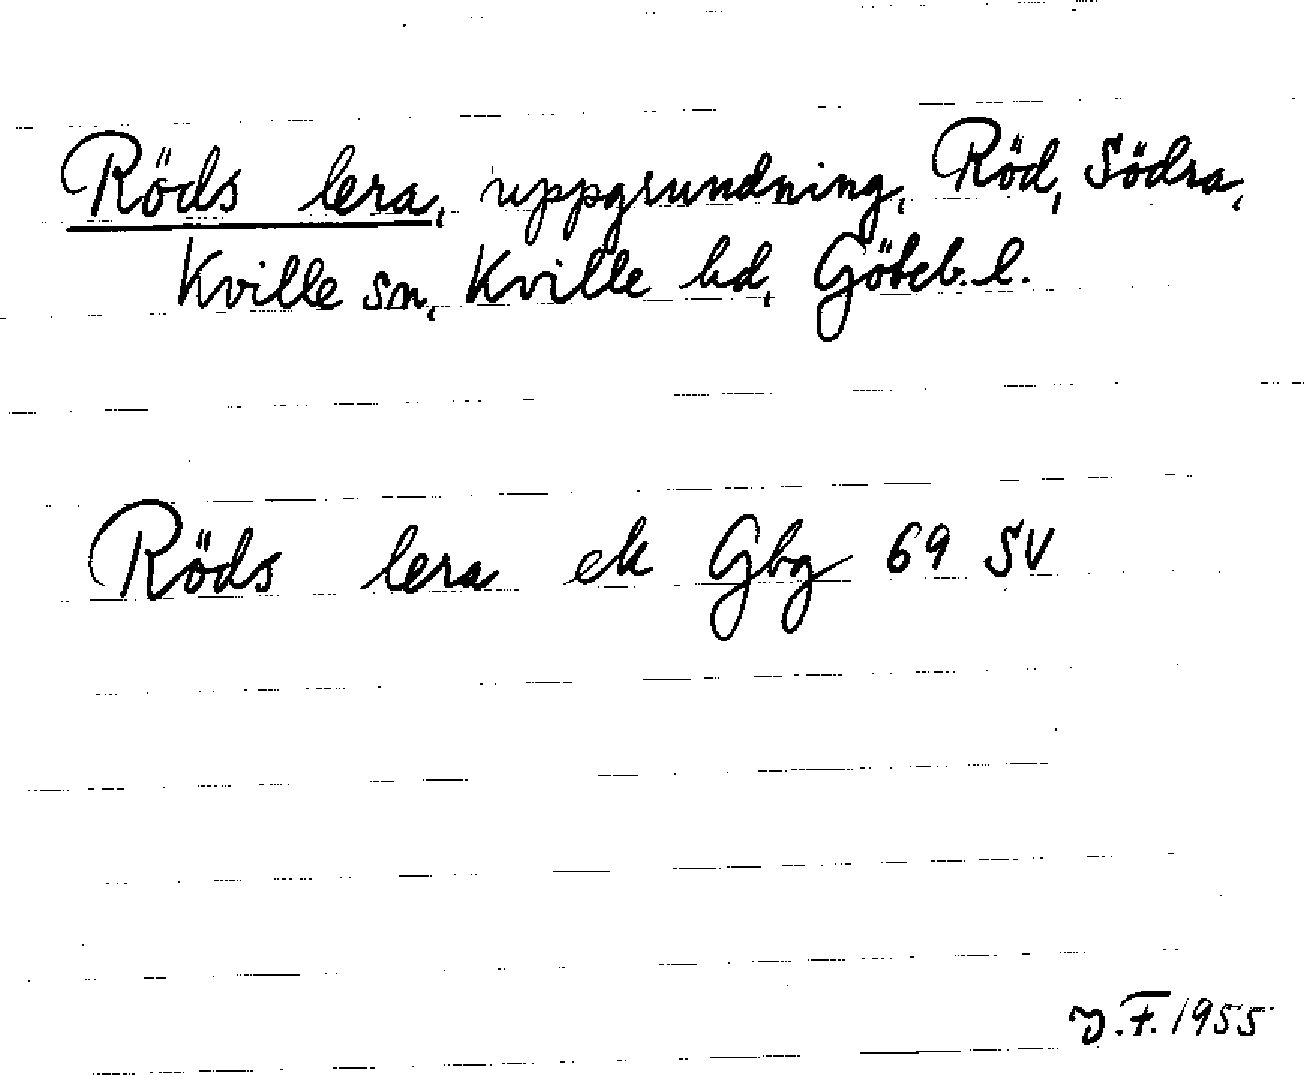 Röds lera, uppgrundning, Röd, Södra,
Kville sn, Kville hd, Göteb. l.
Röds lera ek Gbg 69 SV
J.F. 1955